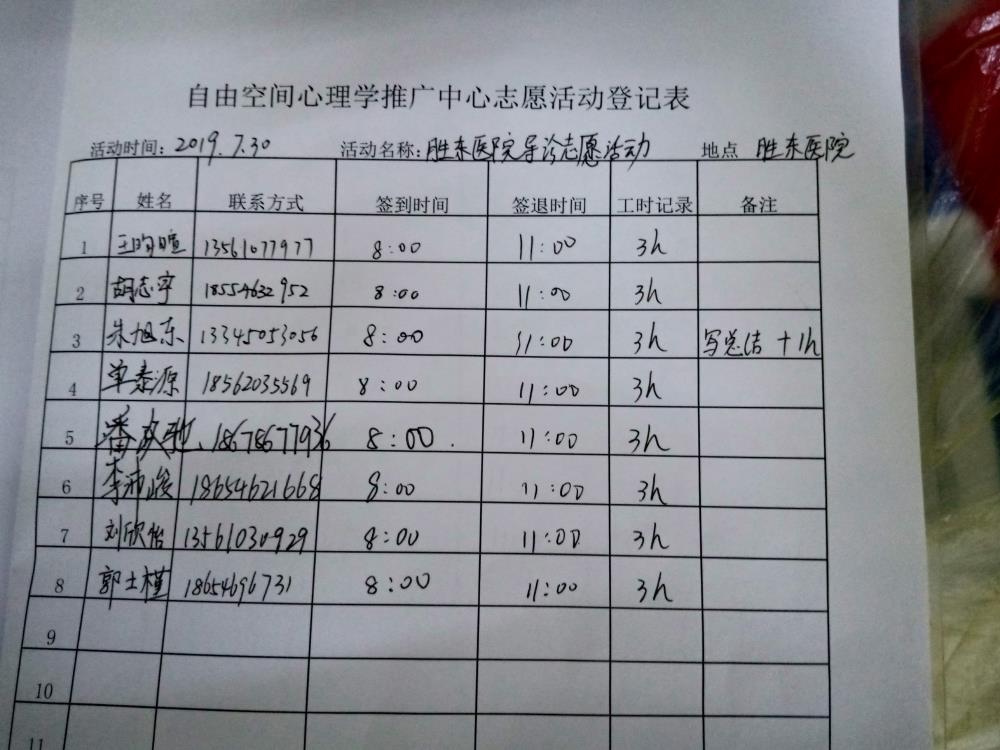 自由空间心理学推广中心志愿活动登记表
活动时间：2019.7.30 活动名称：胜东医院导诊志愿活动 地点 胜东医院
序号 姓名 联系方式 签到时间 签退时间 工时记录 备注
1 王昀暄 13561077977 8:00 11:00 3h
2 胡志宇 18554632952 8:00 11:00 3h
3 朱旭东 13345053056 8:00 11:00 3h 写总结 +1h
4 单泰源 18562035569 8:00 11:00 3h
5 潘 驰 18678677936 8:00 11:00 3h
6 李沛峻 18654621668 8:00 11:00 3h
7 刘欣怡 13561030929 8:00 11:00 3h
8 郭士槿 18654696731 8:00 11:00 3h
9
10
11